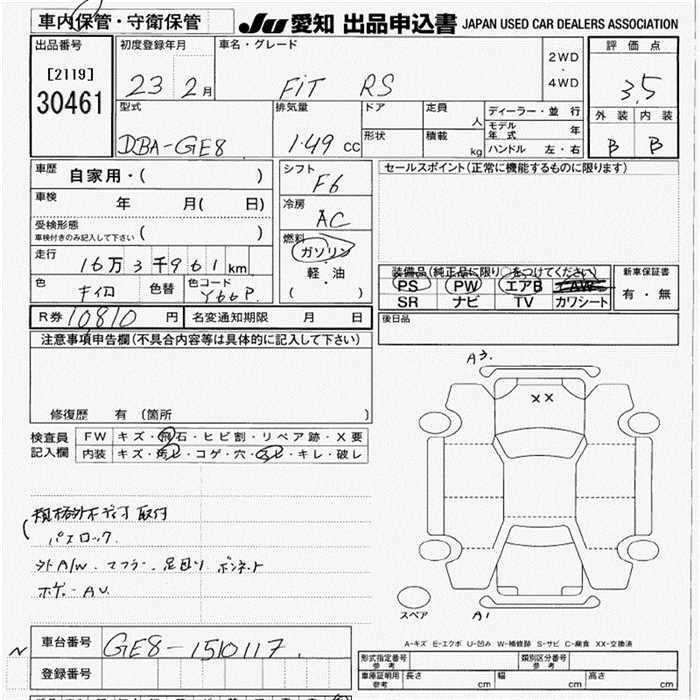 車内保管・守衛保管 JU 愛知 出品申込書 JAPAN USED CAR DEALERS ASSOCIATION
出品番号 初度登録年月 車名・グレード 評価点
[2119] 30461 23 2月 FiT RS 2WD・4WD 3.5
型式 排気量 ドア 定員 人 ディーラー・並行 外装 内装
DBA-GE8 1.49cc 形状 積載 kg モデル年式 年 ハンドル 左・右 B B
車歴 自家用・( ) シフト F6 セールスポイント(正常に機能するものに限ります)
車検 年 月( 日) 冷房 AC
受検形態 車検付きのみ記入して下さい ( )
燃料 ガソリン
軽・油
( )
走行 16万3千961km
色 キイロ 色替 色コード Y66P
装備品(純正品に限り○をつけてください) 新車保証書
PS PW エアB AW 有・無
SR ナビ TV カワシート
R券 10,810円 名変通知期限 月 日 後日品
注意事項申告欄(不具合内容等は具体的に記入して下さい)
修復歴 有 (箇所 )
検査員記入欄 FW キズ・飛石・ヒビ割・リペア跡・X要
内装 キズ・汚レ・コゲ・穴・スレ・キレ・破レ
A3.
XX
規格外ボディ寸 取付
パスロック.
外A/W. マフラー. 足回り ボンネット
ホゲー AU.
スペア
A1
A-キズ E-エクボ U-凹み W-補修跡 S-サビ C-腐食 XX-交換済
N 車台番号 GE8-1510117.
登録番号
形式指定番号 参考 類別区分番号 参考
車庫証明用 参考 長さ cm 幅 cm 高さ cm